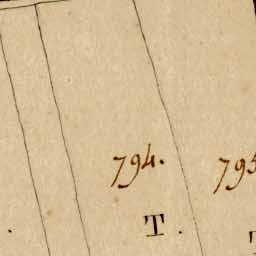 794. 795
T.